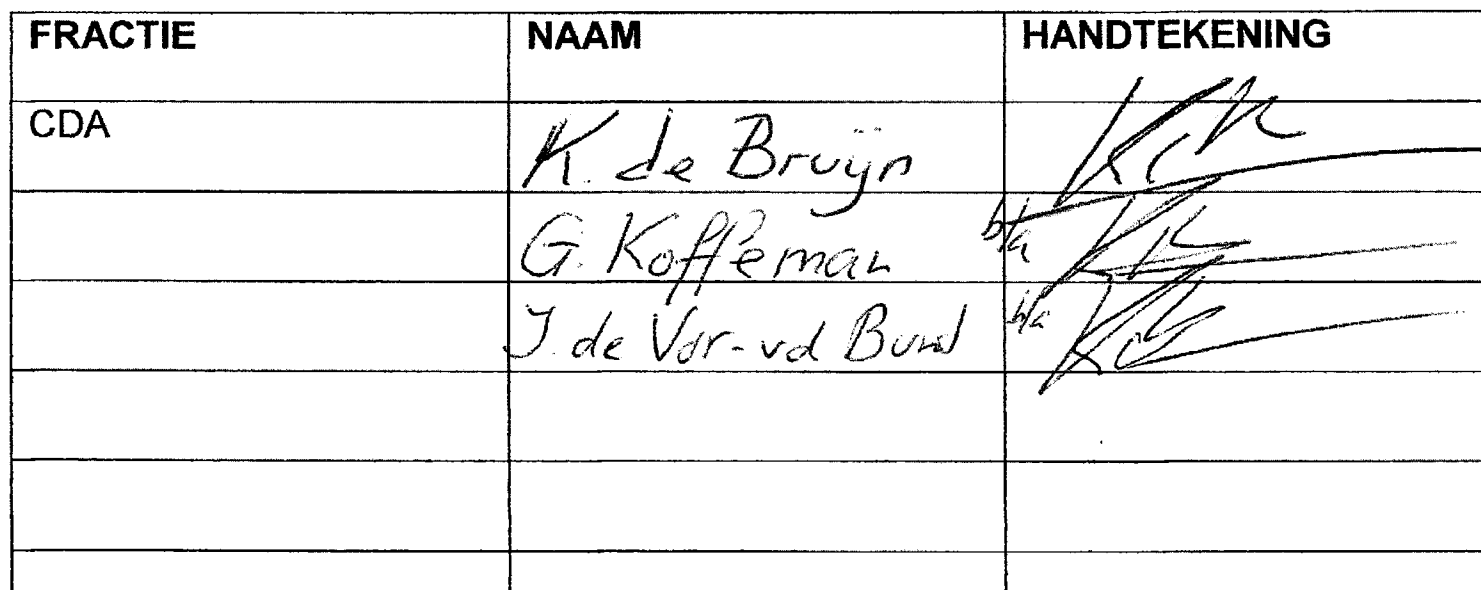 FRACTIE NAAM HANDTEKENING
CDA K. de Bruijn
G. Koffeman b/a
J. de Vor-vd Bund b/a